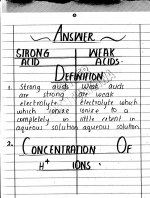 ANSWER
STRONG ACID
WEAK ACIDS.
DEFINITION
1. Strong acids are strong electrolyte which ionize completely in aqueous solution
Weak acids are weak electrolyte which ionize to a little extent in aqueous solution.
2. CONCENTRATION OF H+ IONS